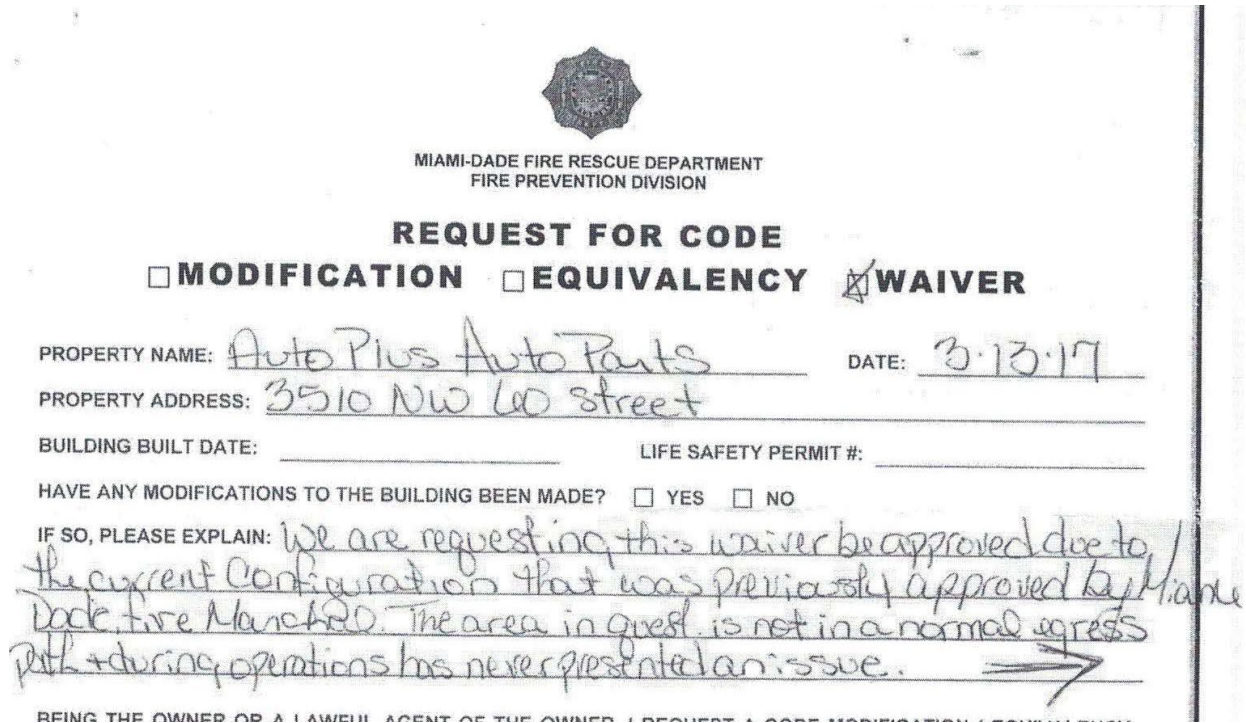 MIAMI-DADE FIRE RESCUE DEPARTMENT
FIRE PREVENTION DIVISION
REQUEST FOR CODE
☐ MODIFICATION ☐ EQUIVALENCY ☒ WAIVER
PROPERTY NAME: Auto Plus Auto Parts DATE: 3·13·17
PROPERTY ADDRESS: 3510 NW 60 Street
BUILDING BUILT DATE: LIFE SAFETY PERMIT #:
HAVE ANY MODIFICATIONS TO THE BUILDING BEEN MADE? ☐ YES ☐ NO
IF SO, PLEASE EXPLAIN: We are requesting this waiver be approved due to
the current Configuration that was previously approved by
Dade fire The area in quest. is not in a normal egress
path + during operations has never presented an issue. →
BEING THE OWNER OR A LAWFUL AGENT OF THE OWNER, I REQUEST A CODE MODIFICATION / EQUIVALENCY